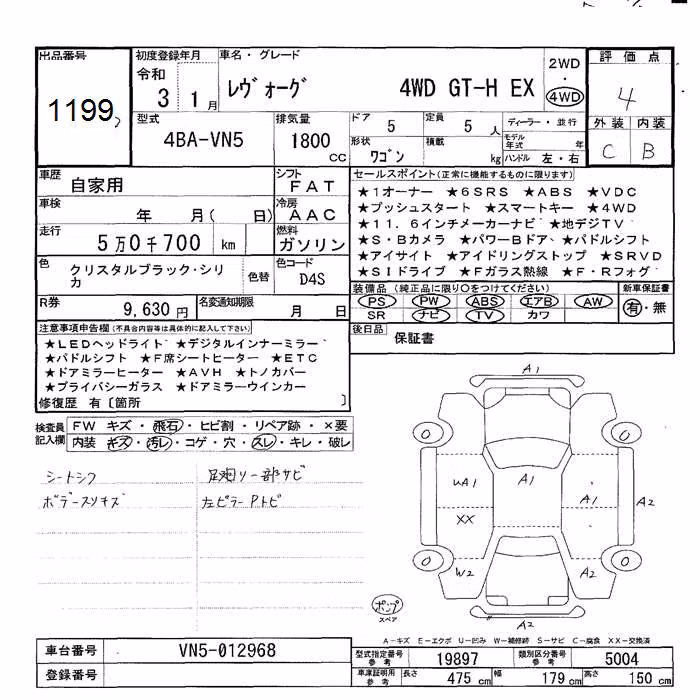 出品番号
1199
初度登録年月
令和
3 1 月
車名・グレード
レヴォーグ 4WD GT-H EX
2WD
・
4WD
評価点
4
外装 内装
C B
型式
4BA-VN5
排気量
1800
CC
ドア 5
定員 5 人
ディーラー・並行
形状 ワゴン
積載 kg
モデル年式 年
ハンドル 左・右
車歴
自家用
シフト
FAT
車検
年 月( 日)
冷房
AAC
走行
5万0千700 km
燃料
ガソリン
色
クリスタルブラック・シリカ
色替
色コード
D4S
R券
9,630 円
名変通知期限
月 日
セールスポイント(正常に機能するものに限ります)
★1オーナー ★6SRS ★ABS ★VDC
★プッシュスタート ★スマートキー ★4WD
★11.6インチメーカーナビ ★地デジTV
★S・Bカメラ ★パワーBドア ★パドルシフト
★アイサイト ★アイドリングストップ ★SRVD
★SIドライブ ★Fガラス熱線 ★F・Rフォグ
装備品 (純正品に限り○をつけてください)
PS PW ABS エアB AW
SR ナビ TV カワ
新車保証書
有・無
後日品
保証書
注意事項申告欄(不具合内容等は具体的に記入して下さい)
★LEDヘッドライト ★デジタルインナーミラー
★パドルシフト ★F席シートヒーター ★ETC
★ドアミラーヒーター ★AVH ★トノカバー
★プライバシーガラス ★ドアミラーウインカー
修復歴 有〔箇所 〕
検査員記入欄
FW キズ・飛石・ヒビ割・リペア跡・×要
内装 キズ・汚レ・コゲ・穴・スレ・キレ・破レ
シートシワ
足廻り一部サビ
ボデースリキズ
左ピラーPトビ
A1
0 0
UA1 A1 A1 A2
XX
0 0
W2 A2
A2
ポンプ
スペア
A-キズ E-エクボ U-凹み W-補修跡 S-サビ C-腐食 XX-交換済
車台番号
VN5-012968
登録番号
型式指定番号
参考
19897
類別区分番号
参考
5004
車庫証明用
参考
長さ 475 cm
幅 179 cm
高さ 150 cm